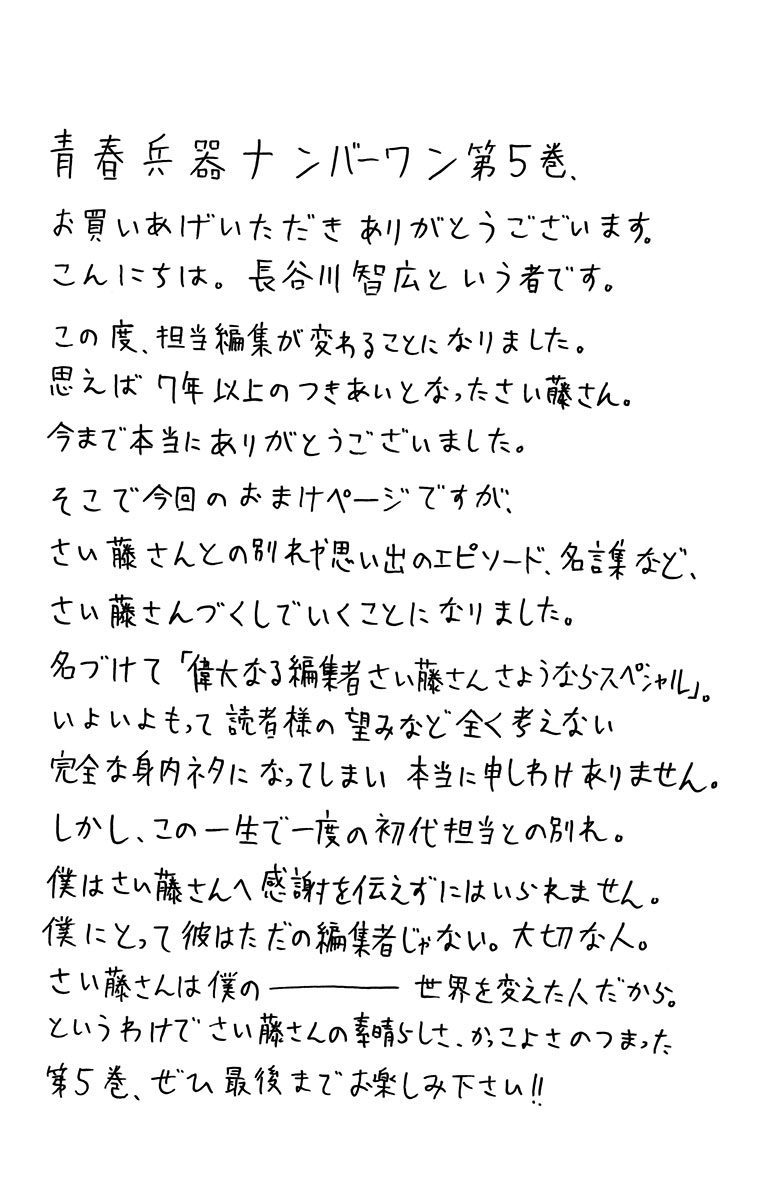 青春兵器ナンバーワン第5巻、
お買いあげいただきありがとうございます。
こんにちは。長谷川智広という者です。
この度、担当編集が変わることになりました。
思えば7年以上のつきあいとなったさい藤さん。
今まで本当にありがとうございました。
そこで今回のおまけページですが、
さい藤さんとの別れや思い出のエピソード、名言集など、
さい藤さんづくしでいくことになりました。
名づけて「偉大なる編集者さい藤さんさようならスペシャル」。
いよいよもって読者様の望みなど全く考えない
完全な身内ネタになってしまい本当に申しわけありません。
しかし、この一生で一度の初代担当との別れ。
僕はさい藤さんへ感謝を伝えずにはいられません。
僕にとって彼はただの編集者じゃない。大切な人。
さい藤さんは僕の――――世界を変えた人だから。
というわけでさい藤さんの素晴らしさ、かっこよさのつまった
第5巻、ぜひ最後までお楽しみ下さい!!